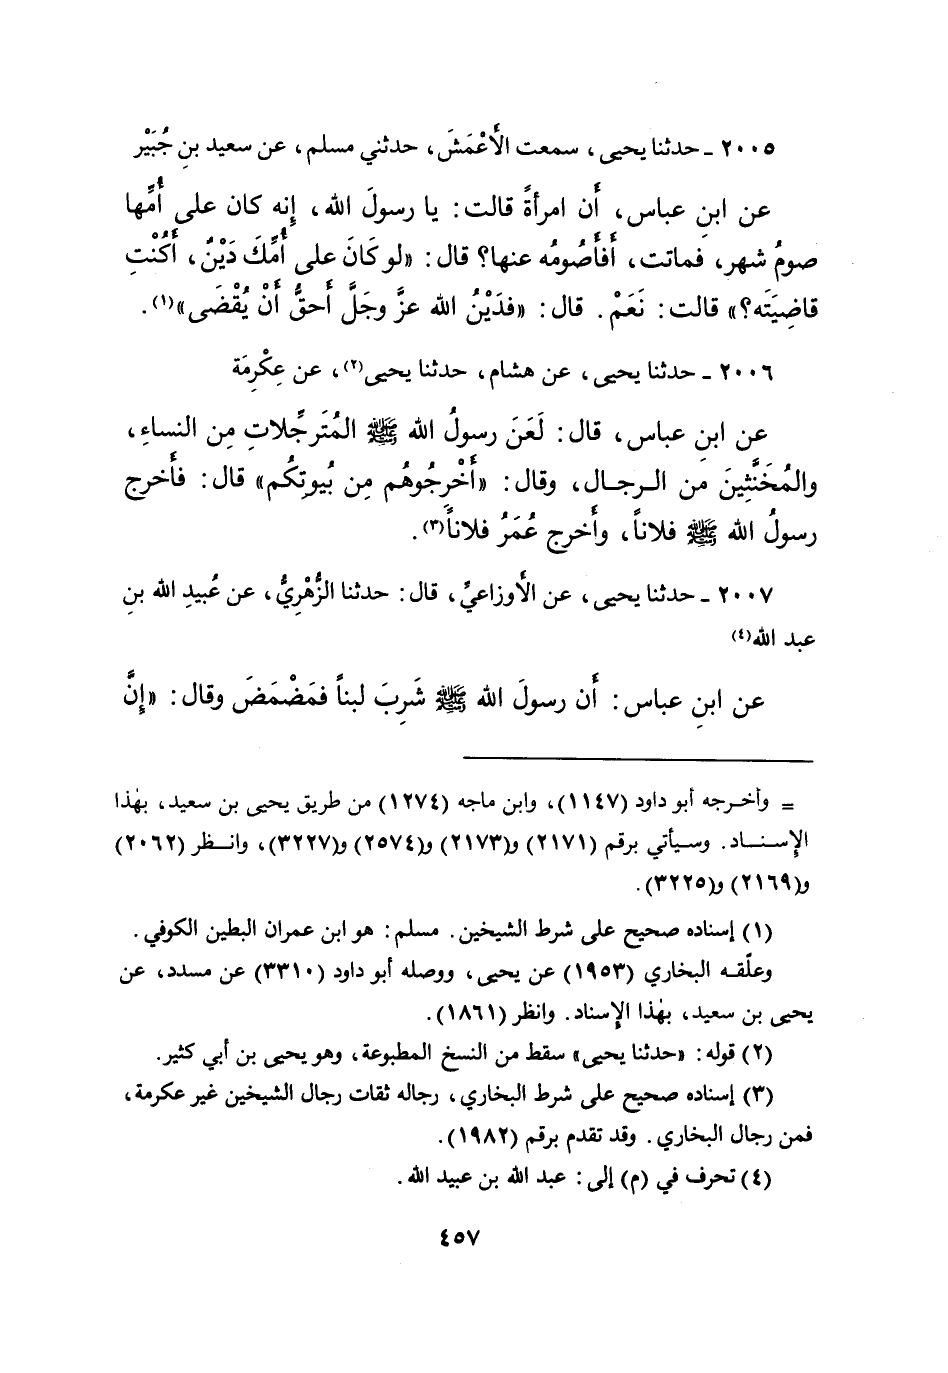 ٢٠٠٥ ـ حدثنا يحيى، سمعت الأَعْمَشَ، حدثني مسلم، عن سعيد بنِ جُبَيْر
عن ابنِ عباس، أَن امرأةً قالت: يا رسولَ الله، إِنه كان على أُمِّها
صومُ شهر، فماتت، أَفأَصُومُه عنها؟ قال: «لو كَانَ على أُمِّكَ دَيْنٌ، أَكُنْتِ
قاضِيَتَه؟» قالت: نَعَمْ. قال: «فدَيْنُ الله عزَّ وجَلَّ أَحقُّ أَنْ يُقْضَى»(١).
٢٠٠٦ ـ حدثنا يحيى، عن هشام، حدثنا يحيى(٢)، عن عِكْرِمَة
عن ابنِ عباس، قال: لَعَنَ رسولُ الله ﷺ المُتَرجِّلاتِ مِن النساءِ،
والمُخَنَّثِينَ من الرجال، وقال: «أَخْرِجُوهُم مِن بُيوتِكُم» قال: فأَخرج
رسولُ الله ﷺ فلاناً، وأَخرج عُمَرُ فلاناً(٣).
٢٠٠٧ ـ حدثنا يحيى، عن الأَوزاعيِّ، قال: حدثنا الزُّهْرِيُّ، عن عُبيدِ الله بنِ
عبد الله(٤)
عن ابنِ عباس: أَن رسولَ الله ﷺ شَرِبَ لبناً فمَضْمَضَ وقال: «إِنَّ
= وأخرجه أبو داود (١١٤٧)، وابن ماجه (١٢٧٤) من طريق يحيى بن سعيد، بهٰذا
الإسناد. وسيأتي برقم (٢١٧١) و(٢١٧٣) و(٢٥٧٤) و(٣٢٢٧)، وانظر (٢٠٦٢)
و(٢١٦٩) و(٣٢٢٥).
(١) إسناده صحيح على شرط الشيخين. مسلم: هو ابن عمران البطين الكوفي.
وعلَّقه البخاري (١٩٥٣) عن يحيى، ووصله أبو داود (٣٣١٠) عن مسدد، عن
يحيى بن سعيد، بهٰذا الإسناد. وانظر (١٨٦١).
(٢) قوله: «حدثنا يحيى» سقط من النسخ المطبوعة، وهو يحيى بن أبي كثير.
(٣) إسناده صحيح على شرط البخاري، رجاله ثقات رجال الشيخين غير عكرمة،
فمن رجال البخاري. وقد تقدم برقم (١٩٨٢).
(٤) تحرف في (م) إلى: عبد الله بن عبيد الله.
٤٥٧